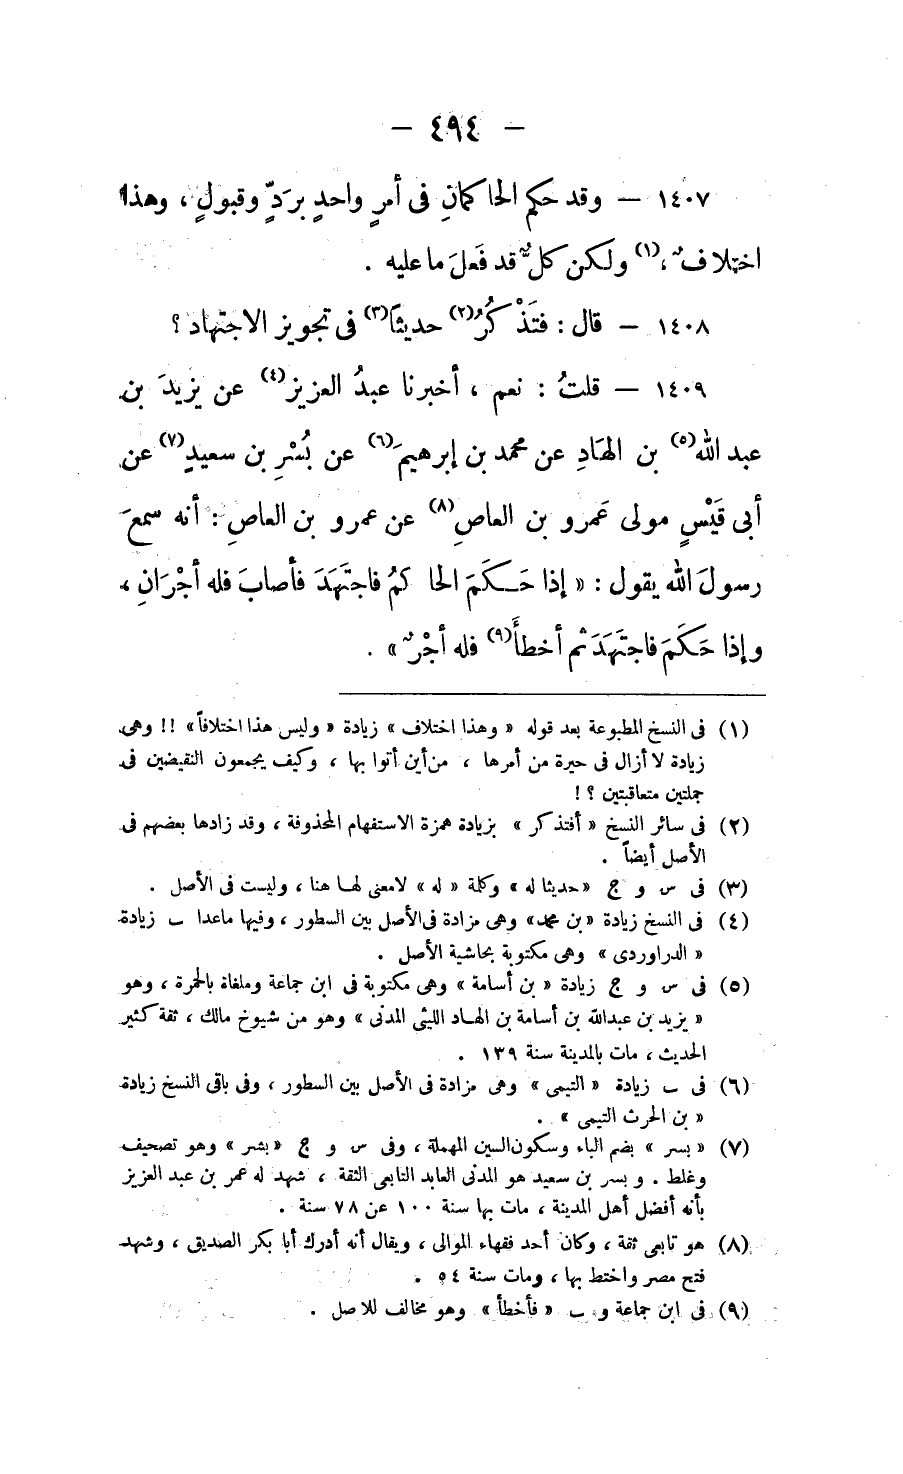 — ٤٩٤ —
١٤٠٧ — وقد حكم الحاكمانِ فى أمرٍ واحدٍ بردٍّ وقبولٍ ، وهذا
اختلافٌ ،(١) ولكن كلٌّ قد فَعلَ ما عليه .
١٤٠٨ — قال : فتَذْكُرُ(٢) حديثًا(٣) فى تجويز الاجتهاد ؟
١٤٠٩ — قلتُ : نعم ، أخبرنا عبدُ العزيز(٤) عن يزيدَ بن
عبد الله(٥) بن الهَادِ عن محمد بن إبرهيمَ(٦) عن بُسْرِ بن سعيدٍ(٧) عن
أبى قَيْسٍ مولى عَمرو بن العاصِ(٨) عن عمرو بن العاصِ : أنه سمعَ
رسولَ الله يقول : « إذا حَكَمَ الحاكمُ فاجتَهَدَ فأصابَ فله أجْرَانِ ،
وإذا حَكَمَ فاجتَهَدَ ثم أخطأَ(٩) فله أجْرٌ » .
(١) فى النسخ المطبوعة بعد قوله « وهذا اختلاف » زيادة « وليس هذا اختلافاً » !! وهى
زيادة لا أزال فى حيرة من أمرها ، من أين أتوا بها ، وكيف يجمعون النقيضين فى
جملتين متعاقبتين ؟ !
(٢) فى سائر النسخ « أفتذكر » بزيادة همزة الاستفهام المحذوفة ، وقد زادها بعضهم فى
الأصل أيضاً .
(٣) فى س و ج « حديثا له » وكلمة « له » لامعنى لها هنا ، وليست فى الأصل .
(٤) فى النسخ زيادة « بن محمد » وهى مزادة فى الأصل بين السطور ، وفيها ماعدا ب زيادة
« الدراوردى » وهى مكتوبة بحاشية الأصل .
(٥) فى س و ج زيادة « بن أسامة » وهى مكتوبة فى ابن جماعة وملغاة بالحمرة ، وهو
« يزيد بن عبدالله بن أسامة بن الهاد الليثى المدنى » وهو من شيوخ مالك ، ثقة كثير
الحديث ، مات بالمدينة سنة ١٣٩ .
(٦) فى ب زيادة « التيمى » وهى مزادة فى الأصل بين السطور ، وفى باقى النسخ زيادة
« بن الحرث التيمى » .
(٧) « بسر » بضم الباء وسكون السين المهملة ، وفى س و ج « بشر » وهو تصحيف
وغلط . و بسر بن سعيد هو المدنى العابد التابعى الثقة ، شهد له عمر بن عبد العزيز
بأنه أفضل أهل المدينة ، مات بها سنة ١٠٠ عن ٧٨ سنة .
(٨) هو تابعى ثقة ، وكان أحد فقهاء الموالى ، ويقال أنه أدرك أبا بكر الصديق ، وشهد
فتح مصر واختط بها ، ومات سنة ٥٤ .
(٩) فى ابن جماعة و ب « فأخطأ » وهو مخالف للاصل .